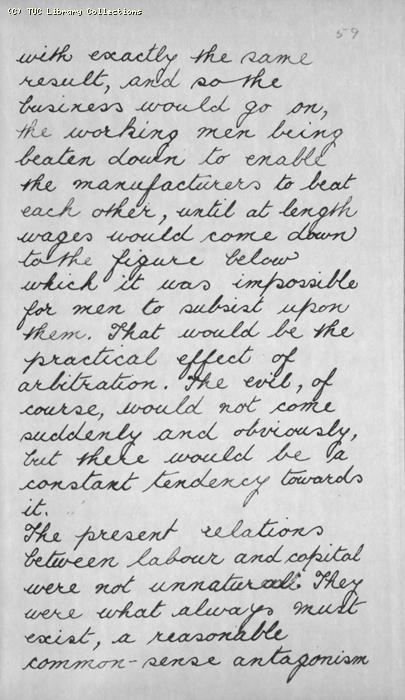 (C) TUC Library Collections
59
with exactly the same
result, and so the
business would go on,
the working men being
beaten down to enable
the manufacturers to beat
each other, until at length
wages would come down
to the figure below
which it was impossible
for men to subsist upon
them. That would be the
practical effect of
arbitration. The evil, of
course, would not come
suddenly and obviously,
but there would be a
constant tendency towards
it.
The present relations
between labour and capital
were not unnatural. They
were what always must
exist, a reasonable
common-sense antagonism